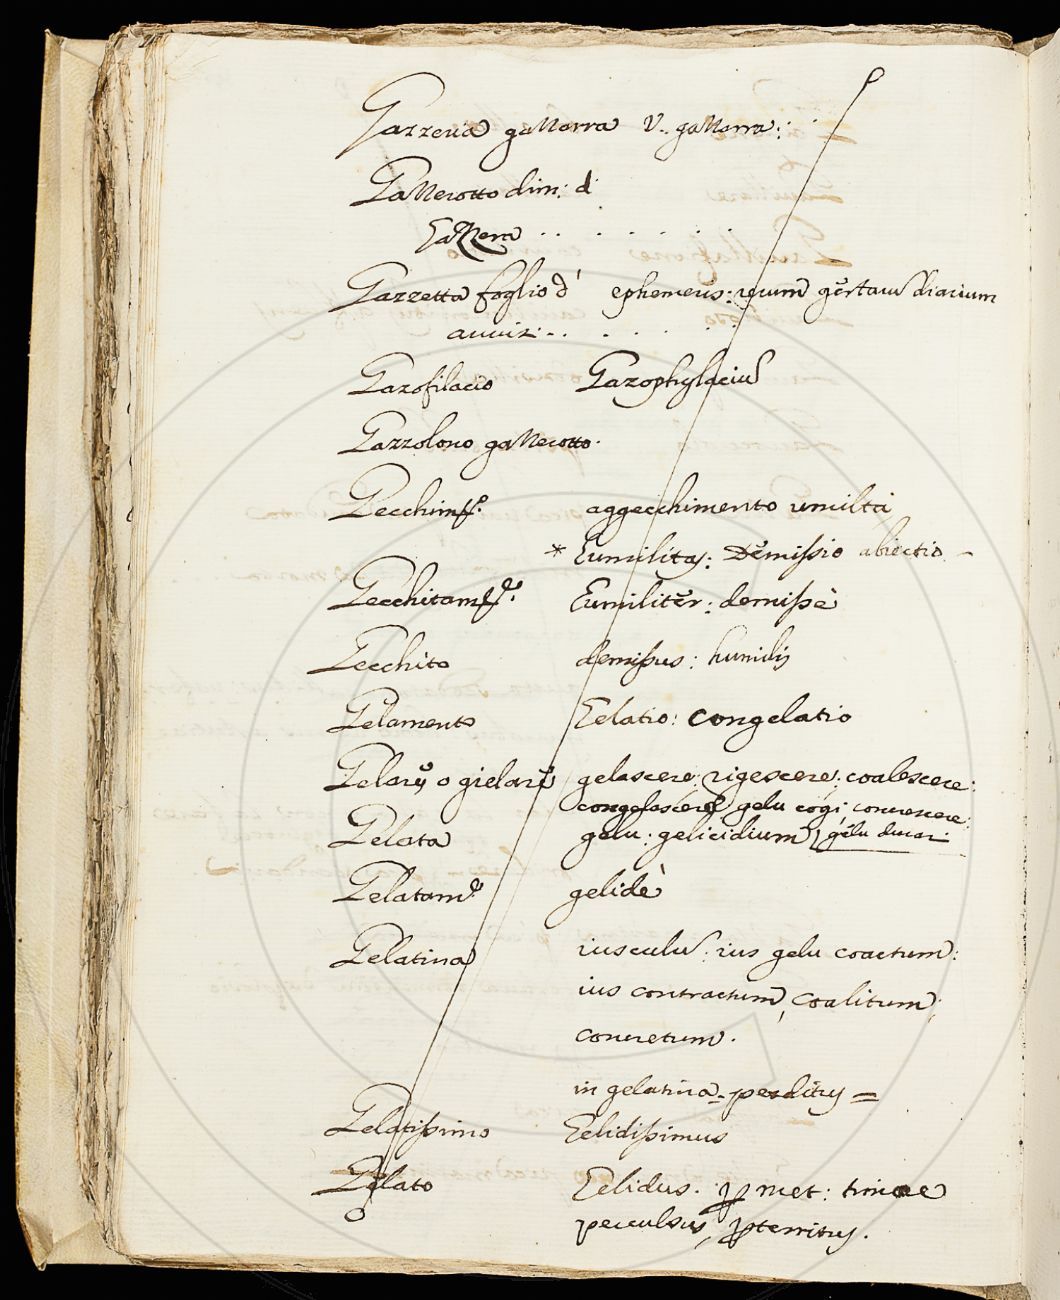 Gazzeria gazzarra V. gazzarra:
Gazzerotto dim: d'
Gazzera
Gazzetta foglio d' ephemeris: rerum gestarũ diarium
auuisi
Gazofilacio Gazophylaciũ
Gazzolono gazzerotto.
Gecchim.to aggecchimento umiltà
* Humilitas: Demissio abiectio
Gecchitam.te Humilitèr: demissè
Gecchito demissus: humilis
Gelamento Gelatio: congelatio
Gelare o gielare gelascere: rigescere; coalescere:
congelascere gelu cogi; concrescere:
Gelata gelu: gelicidium gelu durari
Gelatam.te gelidè
Gelatina iusculũ: ius gelu coactum:
ius contractum, coalitum,
concretum.
in gelatina - perditus =
Gelatissimo Gelidissimus
Gelato Gelidus. p met: timore
perculsus, pterritus.